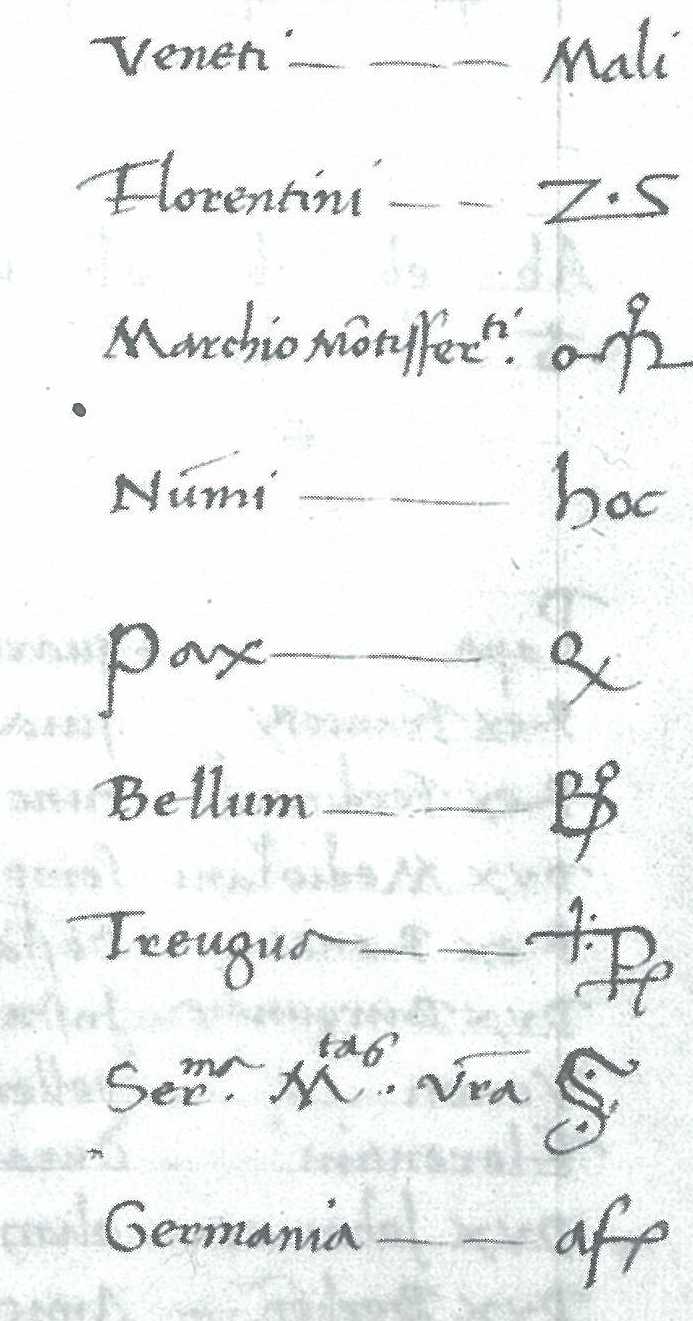 Veneti — — — Mali
Florentini — — Z·S
Marchio Mõtisfer^ti.
Nūmi — — hoc
Pax — —
Bellum — —
Treugua — —
Ser^ma. M^tas. vr̄a
Germania — —